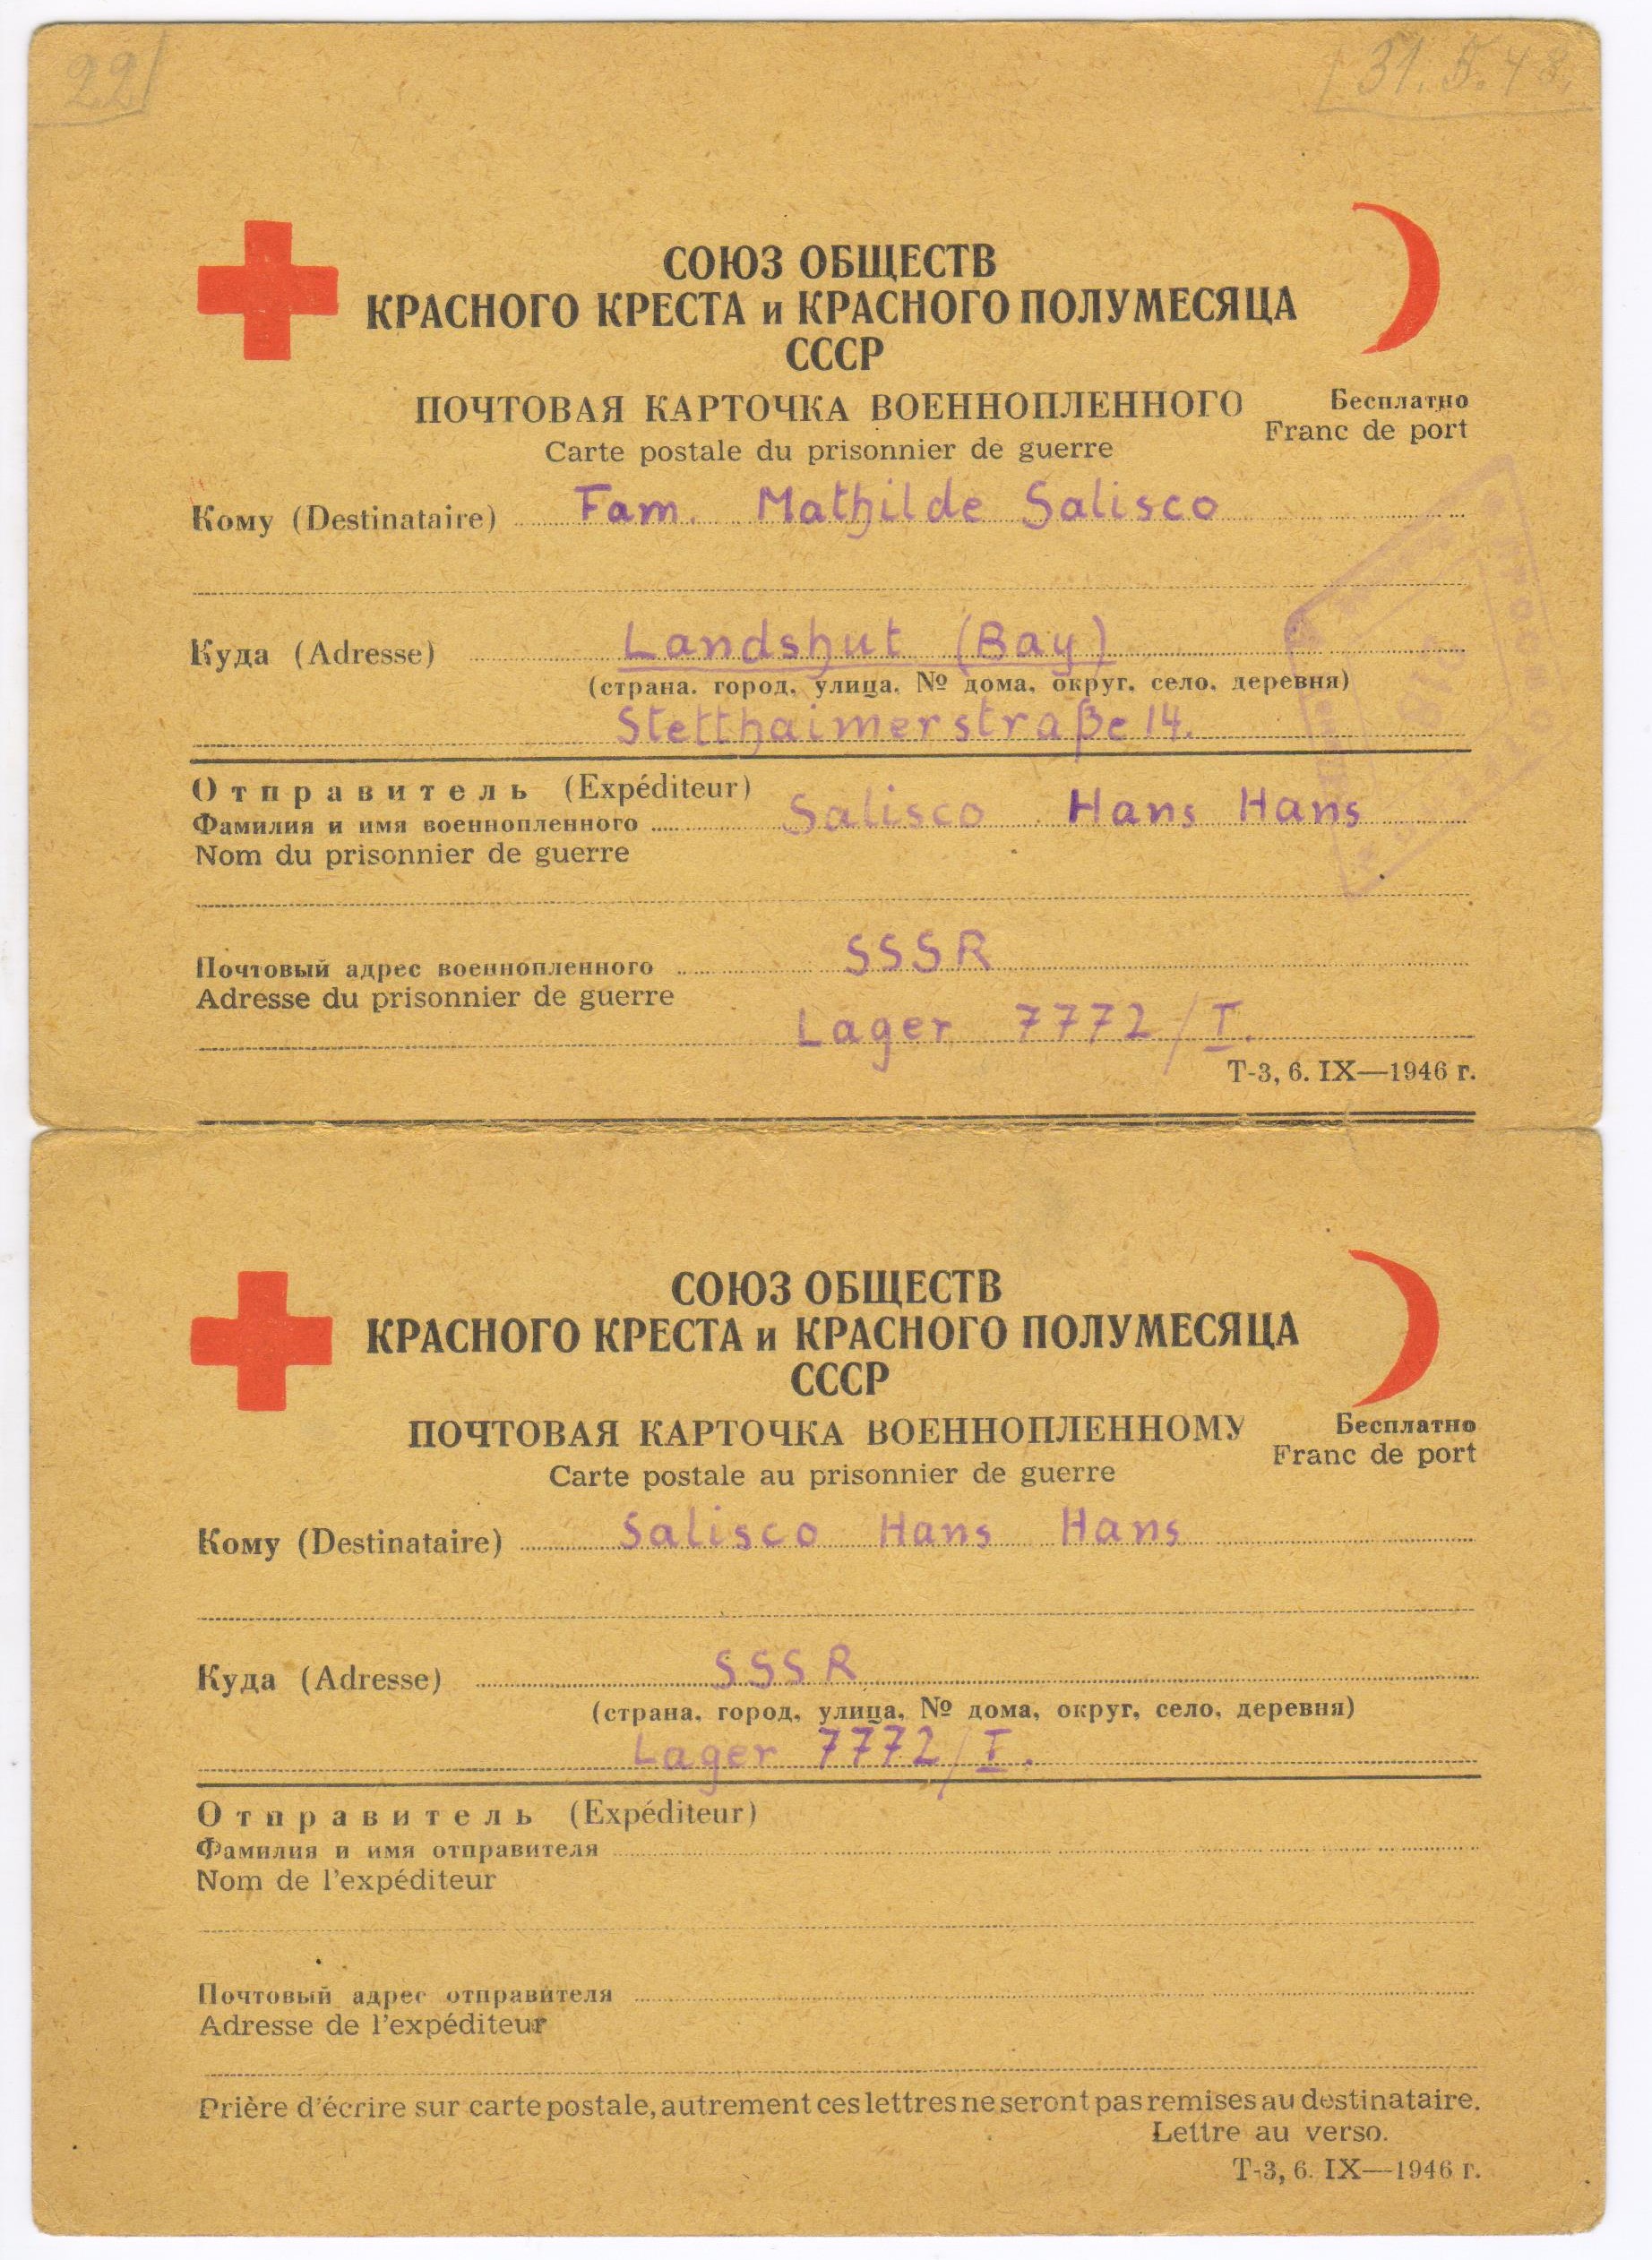 22
31.5.48.
СОЮЗ ОБЩЕСТВ
КРАСНОГО КРЕСТА и КРАСНОГО ПОЛУМЕСЯЦА
СССР
ПОЧТОВАЯ КАРТОЧКА ВОЕННОПЛЕННОГО
Бесплатно
Carte postale du prisonnier de guerre
Franc de port
Кому (Destinataire) Fam. Mathilde Salisco
Куда (Adresse) Landshut (Bay)
(страна. город, улица, № дома, округ, село, деревня)
Stetthaimerstraße 14.
Отправитель (Expéditeur)
Фамилия и имя военнопленного Salisco Hans Hans
Nom du prisonnier de guerre
Почтовый адрес военнопленного SSSR
Adresse du prisonnier de guerre
Lager 7772/I.
Т-3, 6. IX—1946 г.
СОЮЗ ОБЩЕСТВ
КРАСНОГО КРЕСТА и КРАСНОГО ПОЛУМЕСЯЦА
СССР
ПОЧТОВАЯ КАРТОЧКА ВОЕННОПЛЕННОМУ
Бесплатно
Carte postale au prisonnier de guerre
Franc de port
Кому (Destinataire) Salisco Hans Hans
Куда (Adresse) SSSR
(страна, город, улица, № дома, округ, село, деревня)
Lager 7772/I.
Отправитель (Expéditeur)
Фамилия и имя отправителя
Nom de l'expéditeur
Почтовый адрес отправителя
Adresse de l'expéditeur
Prière d'écrire sur carte postale, autrement ces lettres ne seront pas remises au destinataire.
Lettre au verso.
Т-3, 6. IX—1946 г.